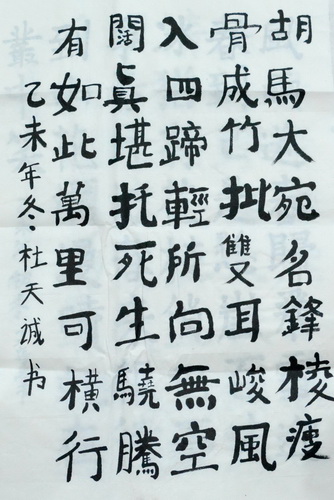 胡馬大宛名鋒棱瘦
骨成竹批雙耳峻風
入四蹄輕所向無空
闊眞堪托死生驍騰
有如此萬里可橫行
乙未年冬杜天诚书